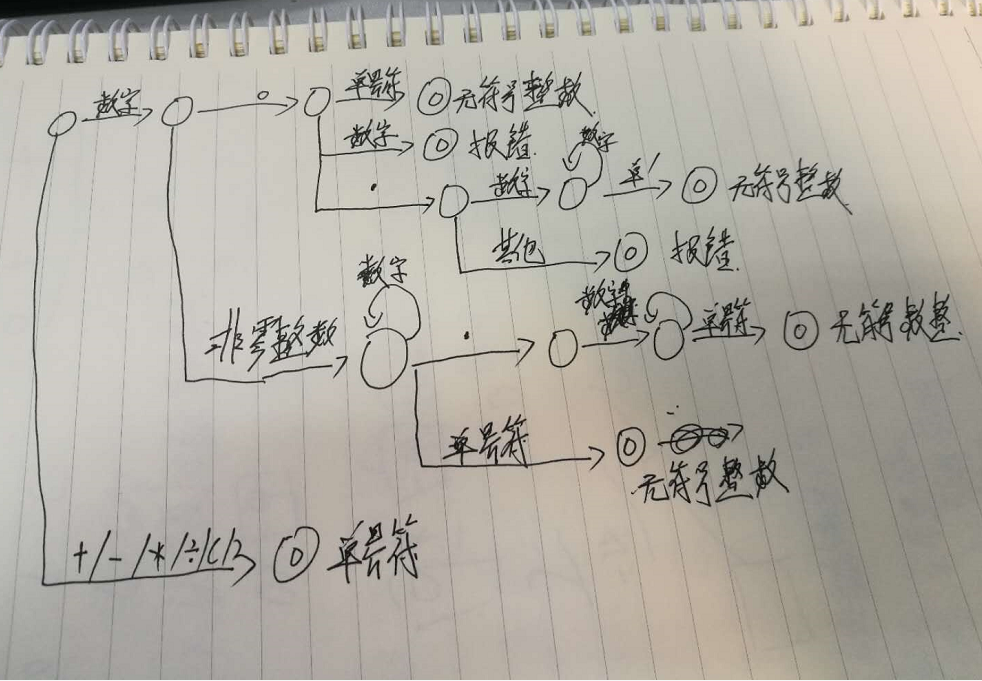 数字 0 单界符 无符号整数
数字 报错
数字
. 数字 单 无符号整数
其他 报错
数字
非零整数 . 数字 单界符 无符号数整
单界符
无符号整数
+/-/*/÷/(/) 单界符